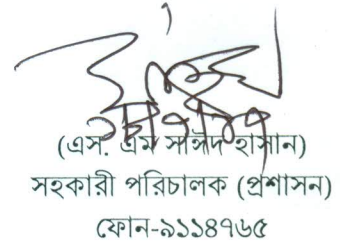 (এস. এম সাঈদ হাসান)
সহকারী পরিচালক (প্রশাসন)
ফোন-৯১১৪৭৬৫